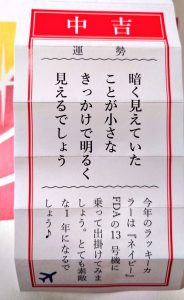 中吉
運勢
暗く見えていた
ことが小さな
きっかけで明るく
見えるでしょう
今年のラッキーカ
ラーは『ネイビー』
FDAの13号機に
乗って出掛けてみま
しょう。とても素敵
な1年になるで
しょう♪